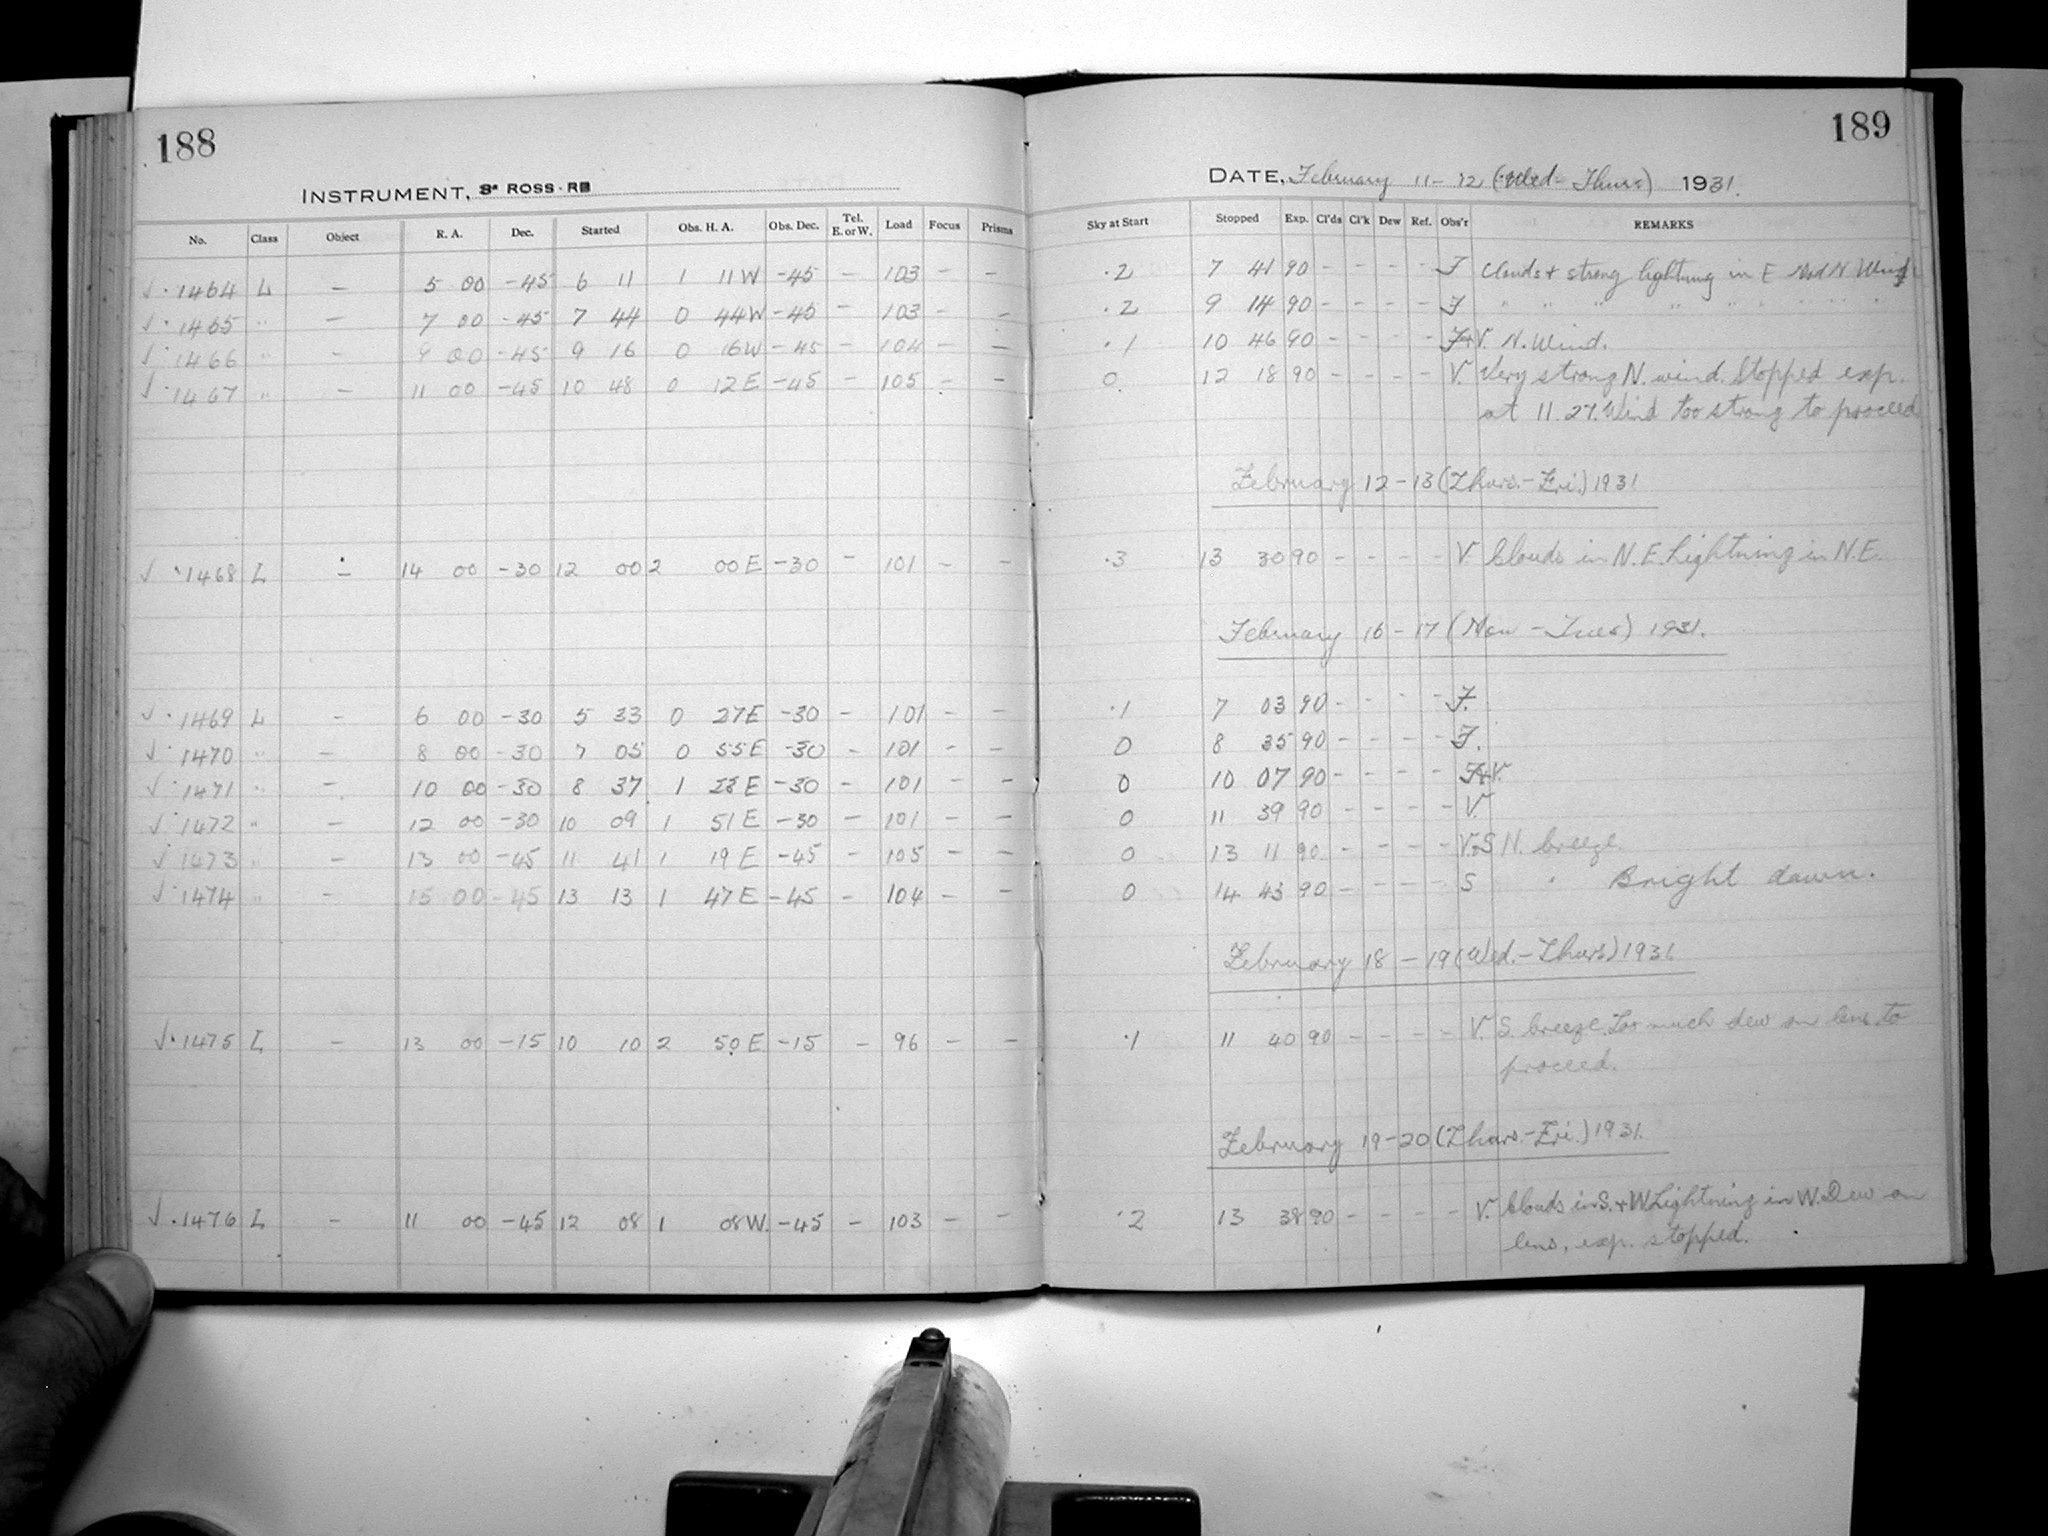 188
INSTRUMENT, 3" ROSS-RB
No. Class Object R. A. Dec. Started Obs. H. A. Obs. Dec. Tel. E. or W. Load Focus Prisms
√ · 1464 L — 5 00 -45 6 11 1 11 W -45 — 103 — —
√ · 1465 " — 7 00 -45 7 44 0 44 W -45 — 103 — —
√ · 1466 " — 9 00 -45 9 16 0 16 W -45 — 104 — —
√ · 1467 " — 11 00 -45 10 48 0 12 E -45 — 105 — —
√ · 1468 L — 14 00 -30 12 00 2 00 E -30 — 101 — —
√ · 1469 L — 6 00 -30 5 33 0 27 E -30 — 101 — —
√ · 1470 " — 8 00 -30 7 05 0 55 E -30 — 101 — —
√ · 1471 " — 10 00 -30 8 37 1 23 E -30 — 101 — —
√ · 1472 " — 12 00 -30 10 09 1 51 E -30 — 101 — —
√ · 1473 " — 13 00 -45 11 41 1 19 E -45 — 105 — —
√ · 1474 " — 15 00 -45 13 13 1 47 E -45 — 104 — —
√ · 1475 L — 13 00 -15 10 10 2 50 E -15 — 96 — —
√ · 1476 L — 11 00 -45 12 08 1 08 W. -45 — 103 — —
189
DATE, February 11-12 (Wed-Thurs) 1931.
Sky at Start Stopped Exp. Cl'ds Cl'k Dew Ref. Obs'r REMARKS
.2 7 41 90 - - - - F Clouds + strong lightning in E N Wind
.2 9 14 90 - - - - F " " " " " " " "
.1 10 46 90 - - - - F+V. N. Wind.
0 12 18 90 - - - - V. Very strong N. wind. Stopped exp.
at 11.27. Wind too strong to proceed
February 12-13 (Thurs.-Fri.) 1931
.3 13 30 90 - - - - V Clouds in N.E. Lightning in N.E.
February 16-17 (Mon-Tues) 1931.
.1 7 03 90 - - - - F.
0 8 35 90 - - - - F.
0 10 07 90 - - - - F+V.
0 11 39 90 - - - - V.
0 13 11 90 - - - - V+S N. breeze.
0 14 43 90 - - - - S " Bright dawn.
February 18-19 (Wed.-Thurs) 1931
.1 11 40 90 - - - - V. S. breeze. Too much dew on lens to
proceed.
February 19-20 (Thurs.-Fri.) 1931.
.2 13 38 90 - - - - V. Clouds in S. + W. Lightning in W. Dew on
lens, exp. stopped.